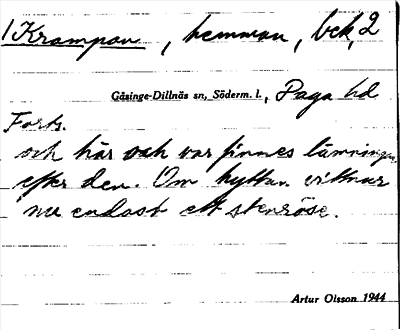 1 Krampan, hemman, bek, 2
Gåsinge-Dillnäs sn, Söderm. l., Daga hd
Forts.
och här och var finnes lämningar
efter den. Om hyttan vittnar
nu endast ett stenröse.
Artur Olsson 1944